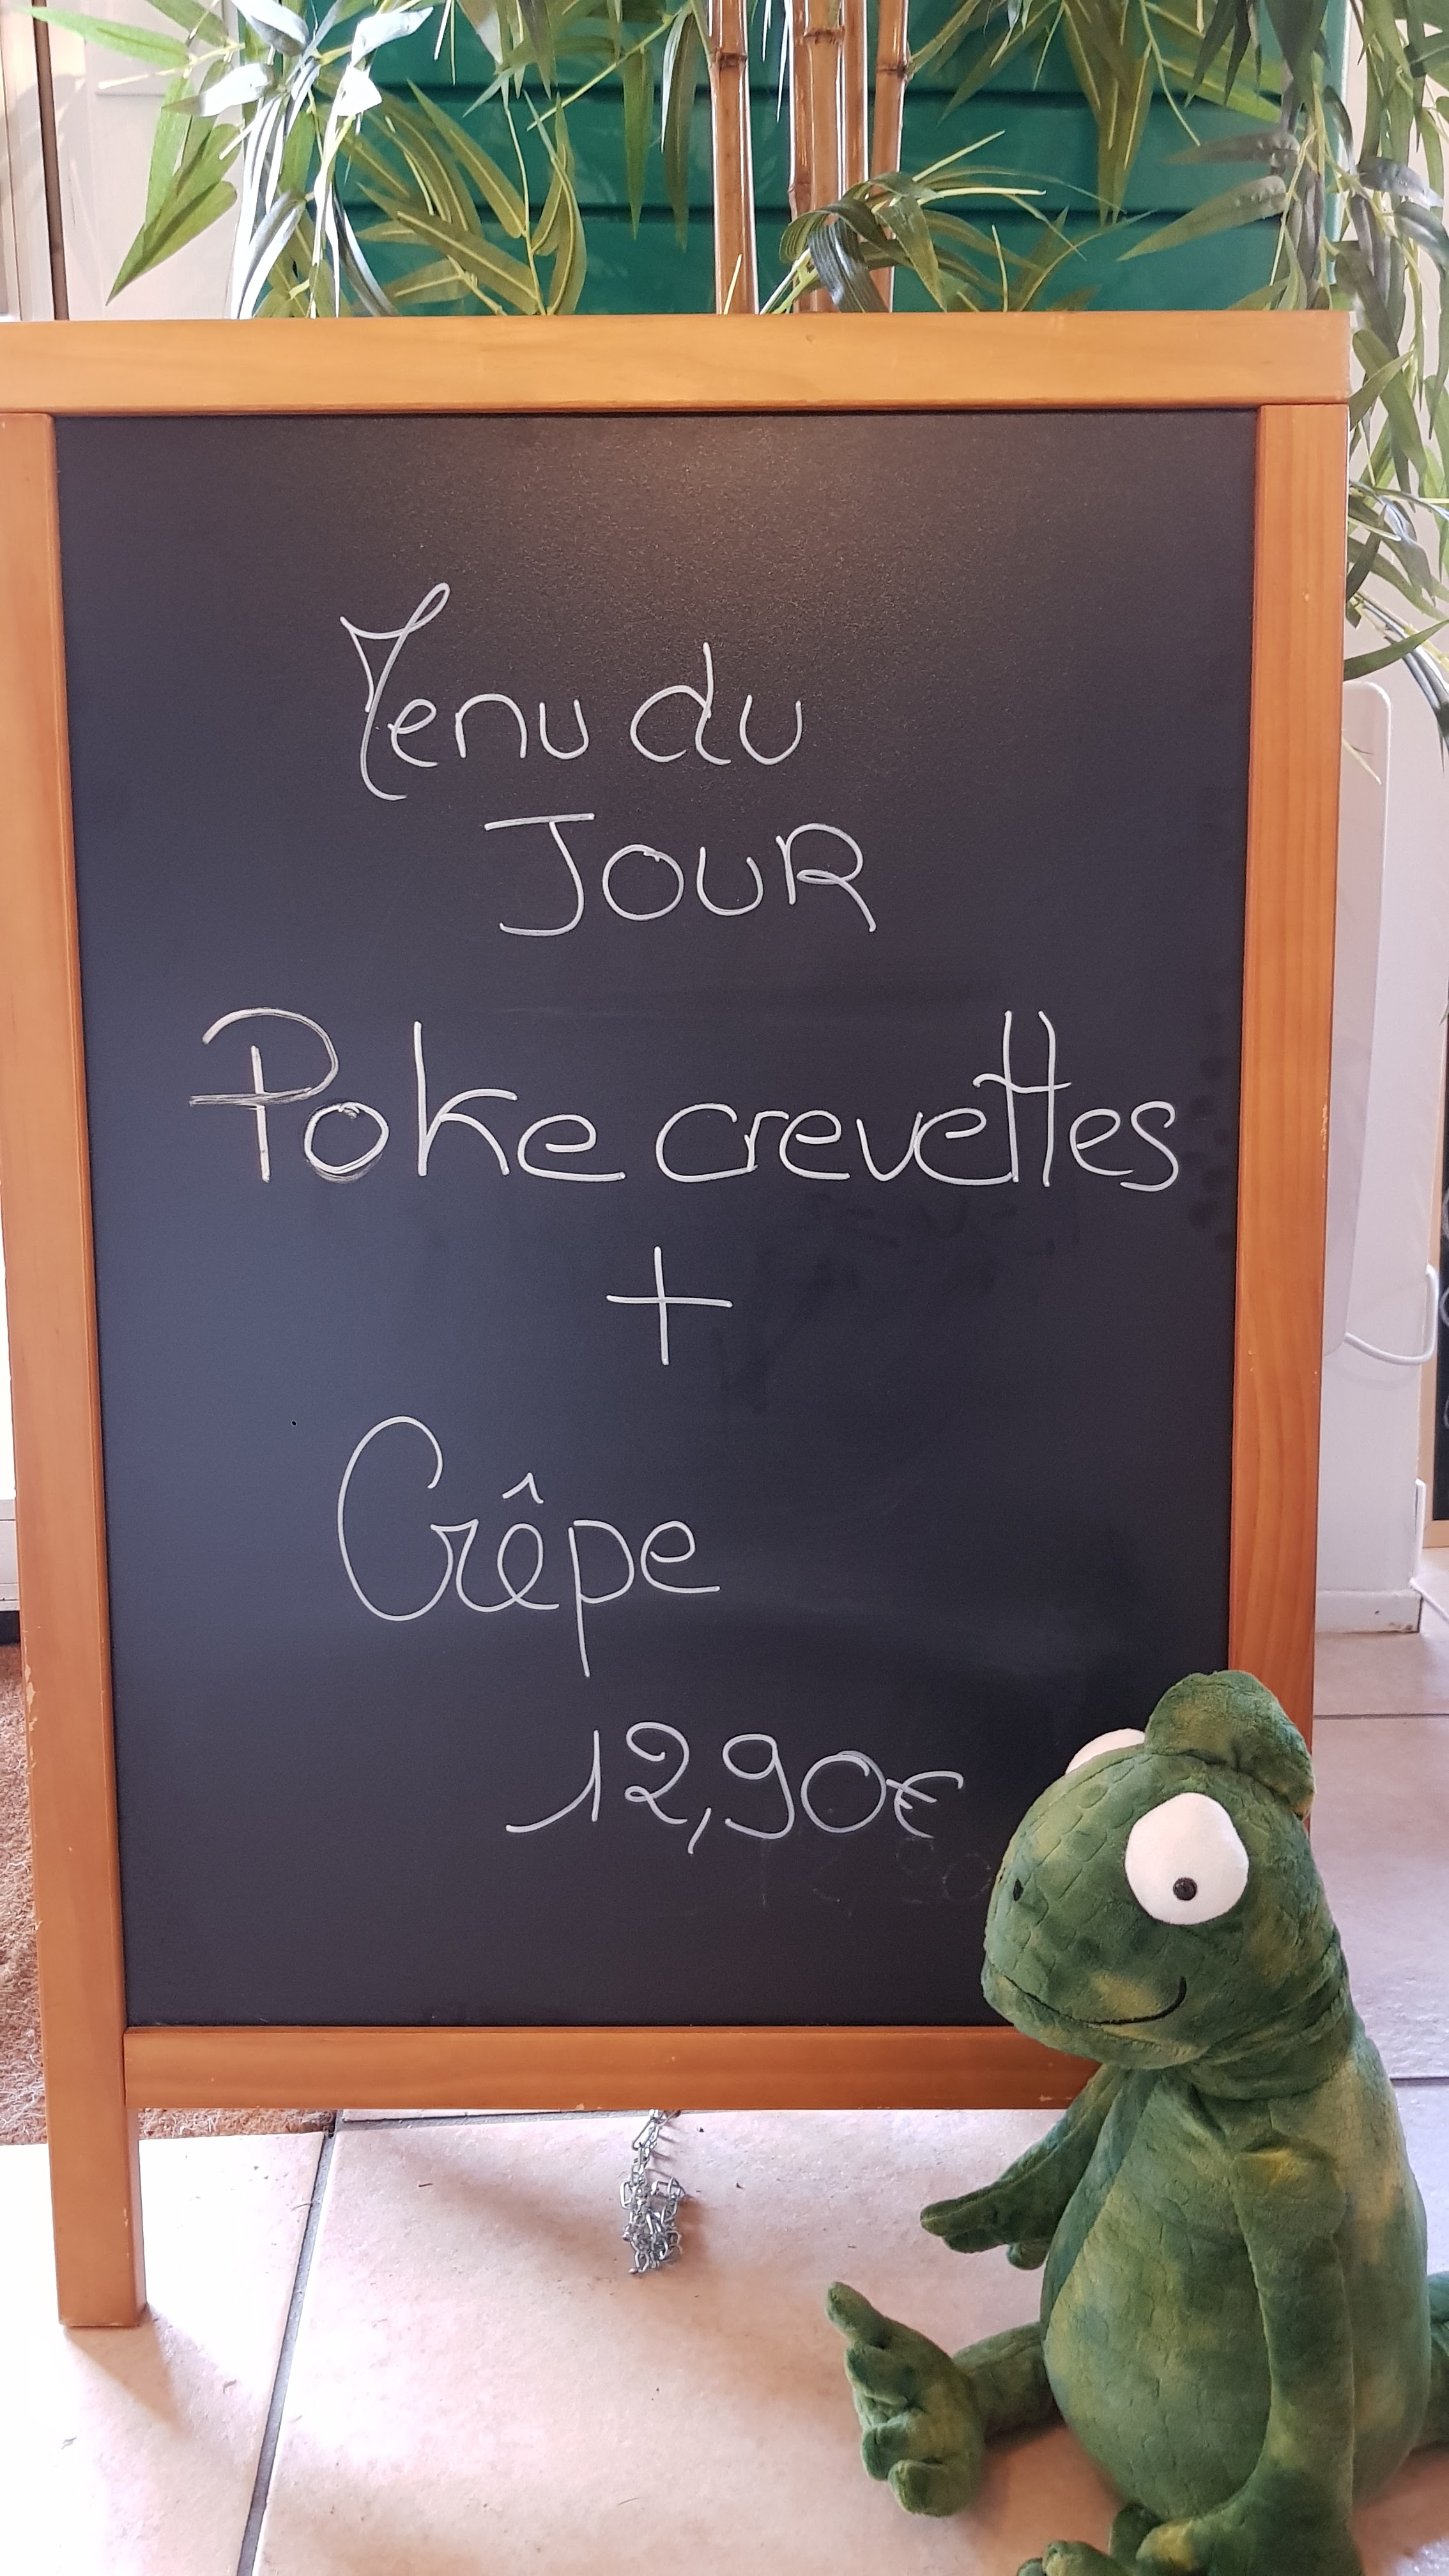 Menu du
JOUR
Poke crevettes
+
Crêpe
12,90€